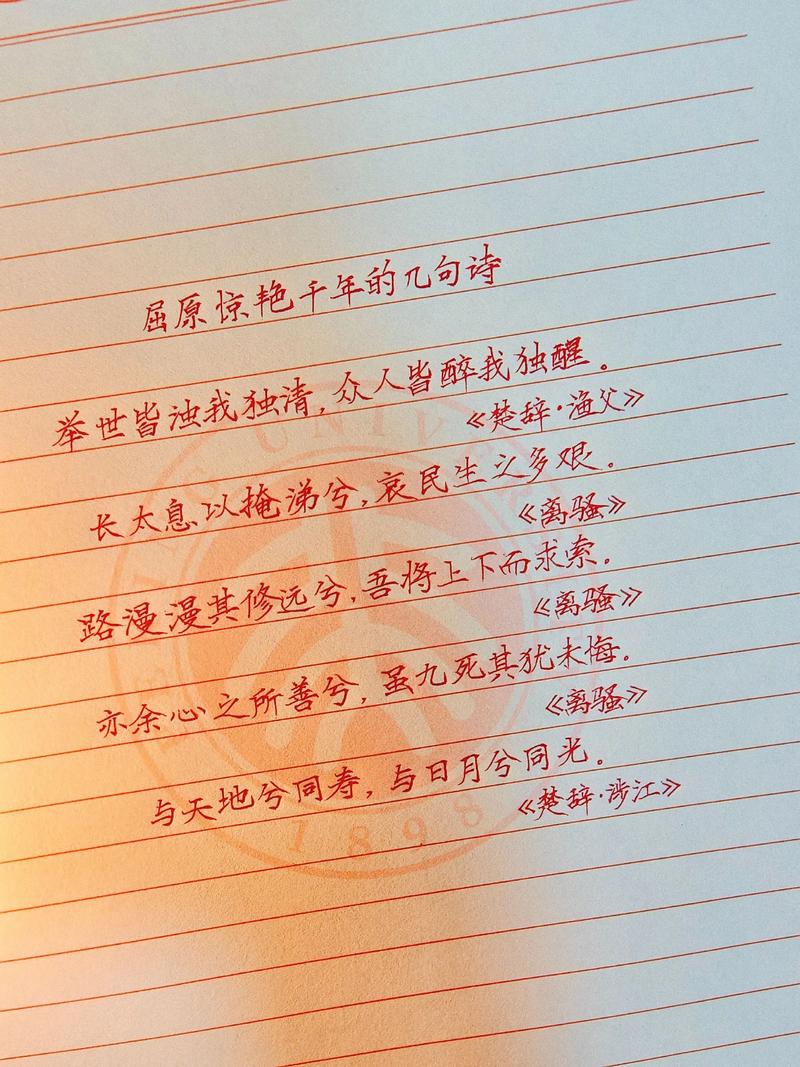 屈原惊艳千年的几句诗
举世皆浊我独清，众人皆醉我独醒。
《楚辞·渔父》
长太息以掩涕兮，哀民生之多艰。
《离骚》
路漫漫其修远兮，吾将上下而求索。
《离骚》
亦余心之所善兮，虽九死其犹未悔。
《离骚》
与天地兮同寿，与日月兮同光。
《楚辞·涉江》
1898